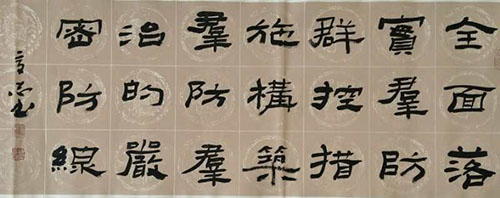 全面落
實羣防
群控措
施構築
羣防羣
治的嚴
密防線